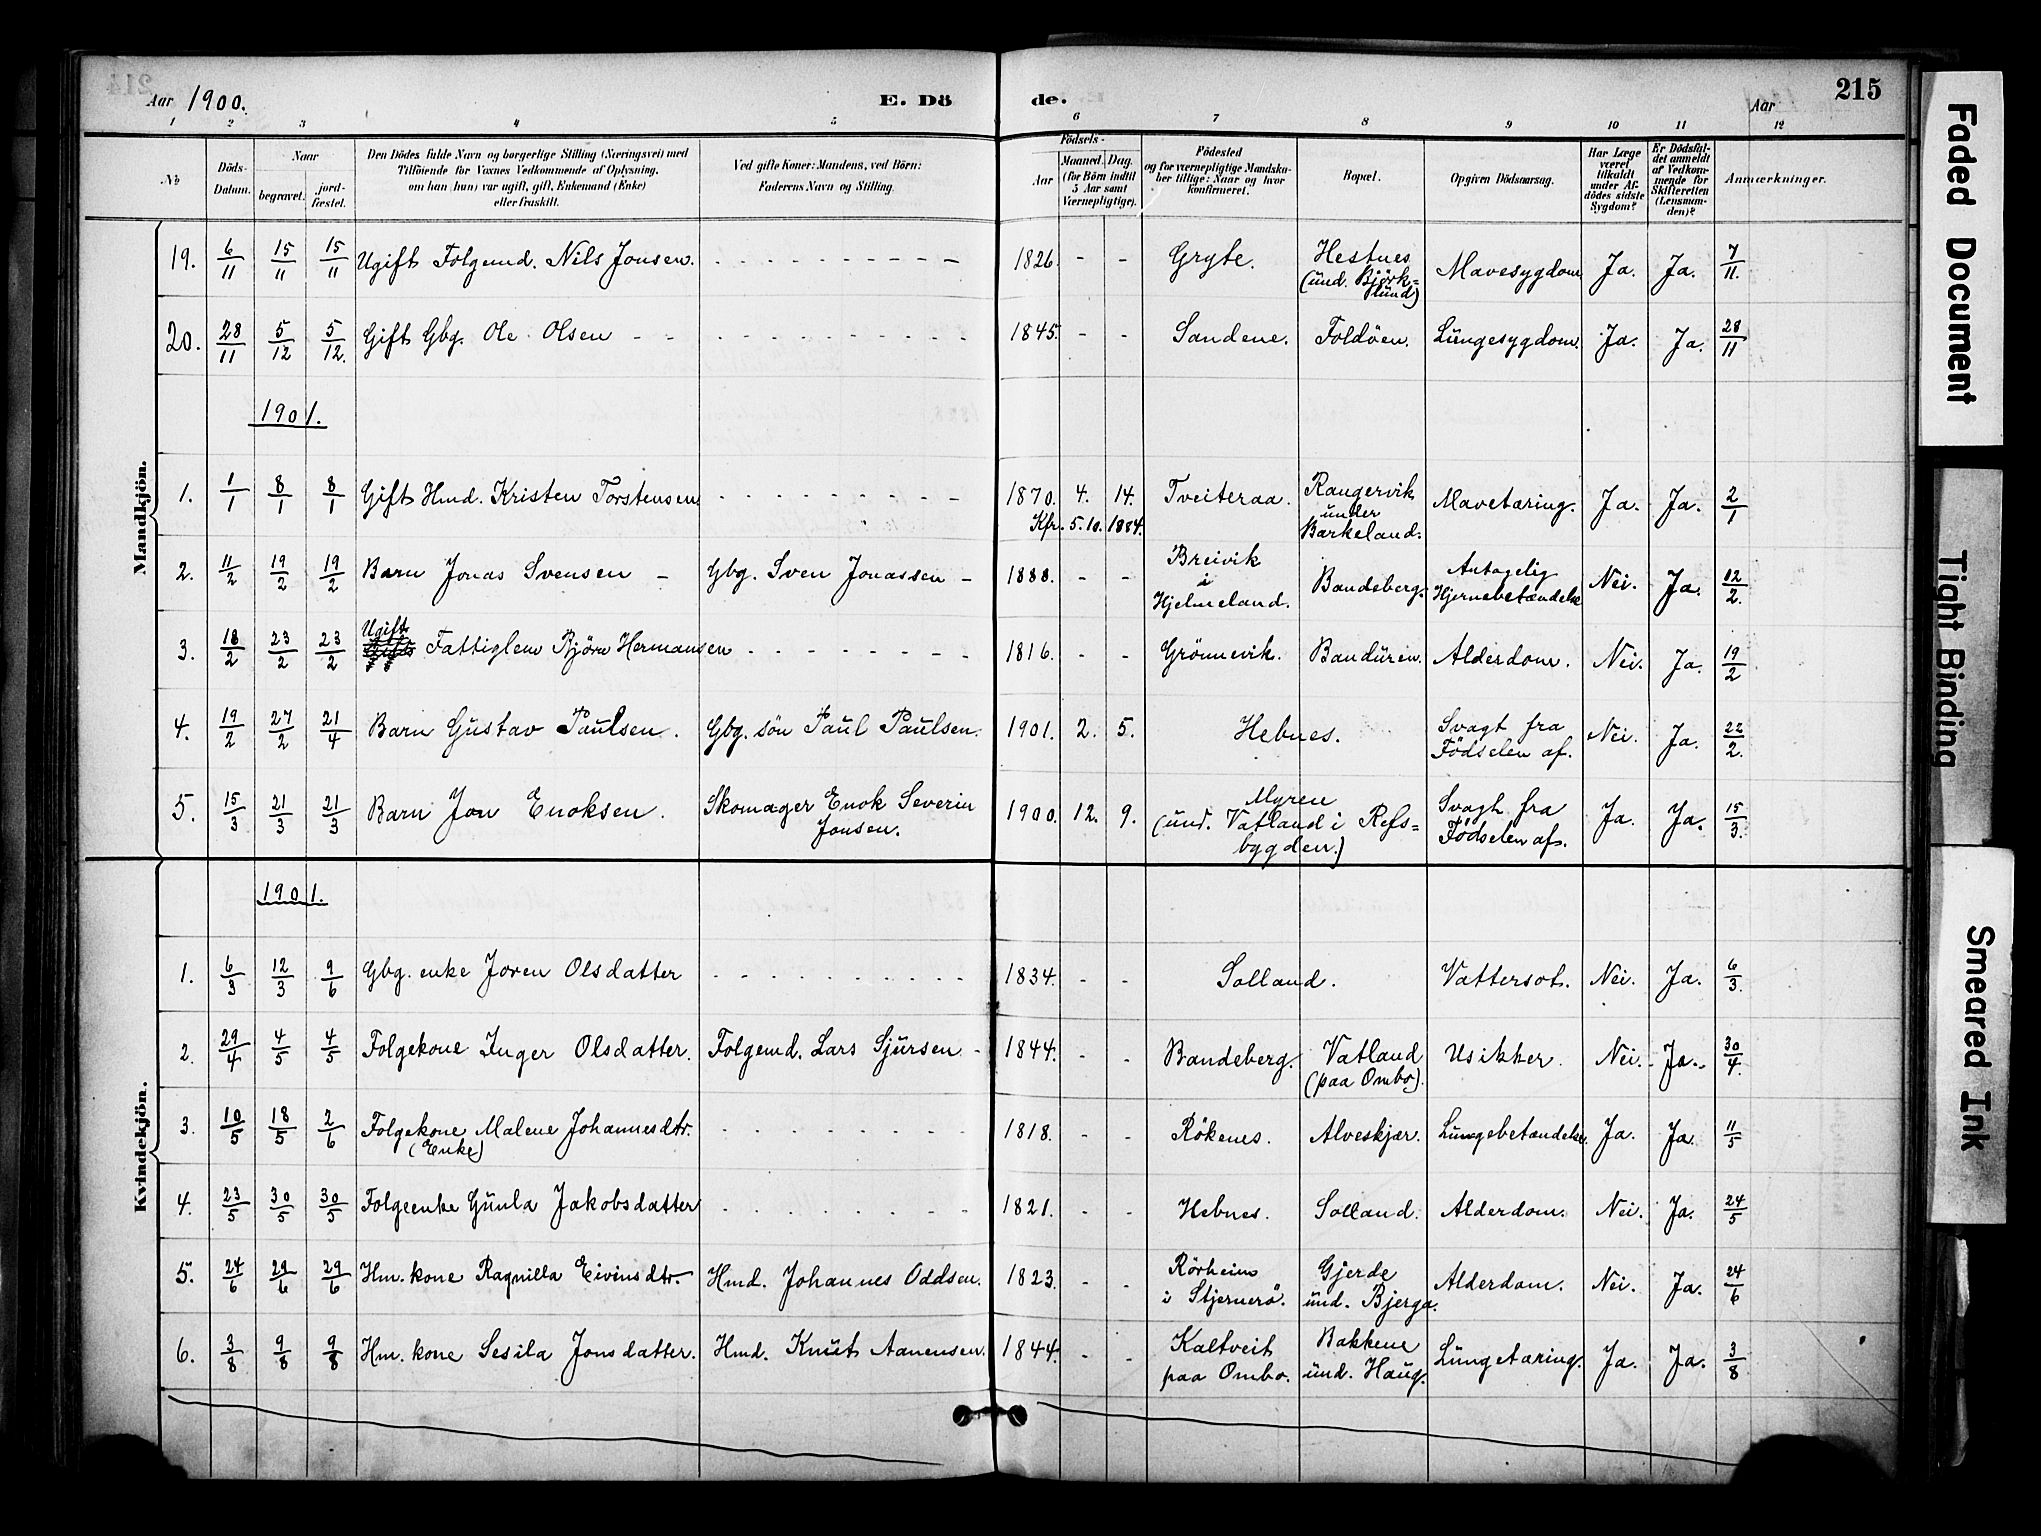 Aar 1900. E. Dö de. Aar 215
1 2 3 4 5 6 7 8 9 10 11 12
No
Döds-
Datum.
Naar
begravet. jord-
fæstet.
Den Dödes fulde Navn og borgerlige Stilling (Næringsvei) med
Tilföiende for Voxnes Vedkommende af Oplysning,
om han (hun) var ugift, gift, Enkemand (Enke)
eller fraskilt.
Ved gifte Koner: Mandens, ved Börn:
Faderens Navn og Stilling.
Födsels-
Aar Maaned. Dag.
(for Börn indtil
5 Aar samt
Værnepligtige).
Födested
og for værnepligtige Mandska-
ber tillige: Naar og hvor
konfirmeret.
Bopæl.
Opgiven Dödsaarsag.
Har Læge
været
tilkaldt
under Af-
dödes sidste
Sygdom?
Er Dödsfal-
det anmeldt
af Vedkom-
mende for
Skifteretten
(Lensman-
den)?
Anmærkninger.
Mandkjön.
19. 6/11 15/11 15/11 Ugift Folgemd. Nils Jonsen. 1826. - - Gryte. Hestnes (und. Björk=lund) Mavesygdom Ja. Ja. 7/11.
20. 28/11 5/12 5/12. Gift Gbg. Ole Olsen 1845. - - Sandene. Foldöen. Lungesygdom. Ja. Ja. 28/11
1901.
1. 1/1 8/1 8/1 Gift Hmd. Kristen Torstensen 1870. 4. 14. Tveiteraa. Rangervik under Barkeland. Mavetæring. Ja. Ja. 2/1
Kfr. 5.10. 1884.
2. 11/2 19/2 19/2 Barn Jonas Svensen - Gbg. Sven Jonassen - 1888. - - Breivik i Hjelmeland. Bandeberg. Antagelig Hjernebetændelse Nei. Ja. 12/2.
3. 18/2 23/2 23/2 Ugift Fattiglem Björn Hermansen 1816. - - Grönnevik. Banduren. Alderdom. Nei. Ja. 19/2
4. 19/2 27/2 21/4 Barn Gustav Paulsen. Gbg. sön Paul Paulsen. 1901. 2. 5. Hebnes. Svagt fra Födselen af. Nei. Ja. 22/2.
5. 15/3 21/3 21/3 Barn Jon Enoksen. Skomager Enok Severin Jonsen. 1900. 12. 9. Myren (und. Vatland i Refs=bygden.) Svagt fra Födselen af. Ja. Ja. 15/3.
Kvindekjön.
1901.
1. 6/3 12/3 9/6 Gbg. enke Joren Olsdatter 1834. - - Solland. Vattersot. Nei. Ja. 6/3.
2. 29/4 4/5 4/5 Folgekone Inger Olsdatter. Folgemd. Lars Sjursen - 1844. - - Bandeberg. Vatland (paa Ombo). Usikker. Nei. Ja. 30/4.
3. 10/5 18/5 2/6 Folgekone Malene Johannesdtr. (Enke) 1818. - - Rökenes. Alveskjær. Lungebetændelse. Ja. Ja. 11/5
4. 23/5 30/5 30/5 Folgeenke Gunla Jakobsdatter 1821. - - Hebnes. Solland. Alderdom. Nei. Ja. 24/5
5. 24/6 29/6 29/6 Hm. kone Ragnilla Eivinsdtr. Hmd. Johannes Oddsen. 1823. - - Rörheim i Stjernerö. Gjerde und. Bjerga. Alderdom. Nei. Ja. 24/6
6. 3/8 9/8 9/8 Hm. kone Sesila Jonsdatter. Hmd. Knut Aanensen. 1844. - - Kaltveit paa Ombo. Bakkene und. Haug. Lungetæring. Ja. Ja. 3/8
Faded Document
Tight Binding
Smeared Ink